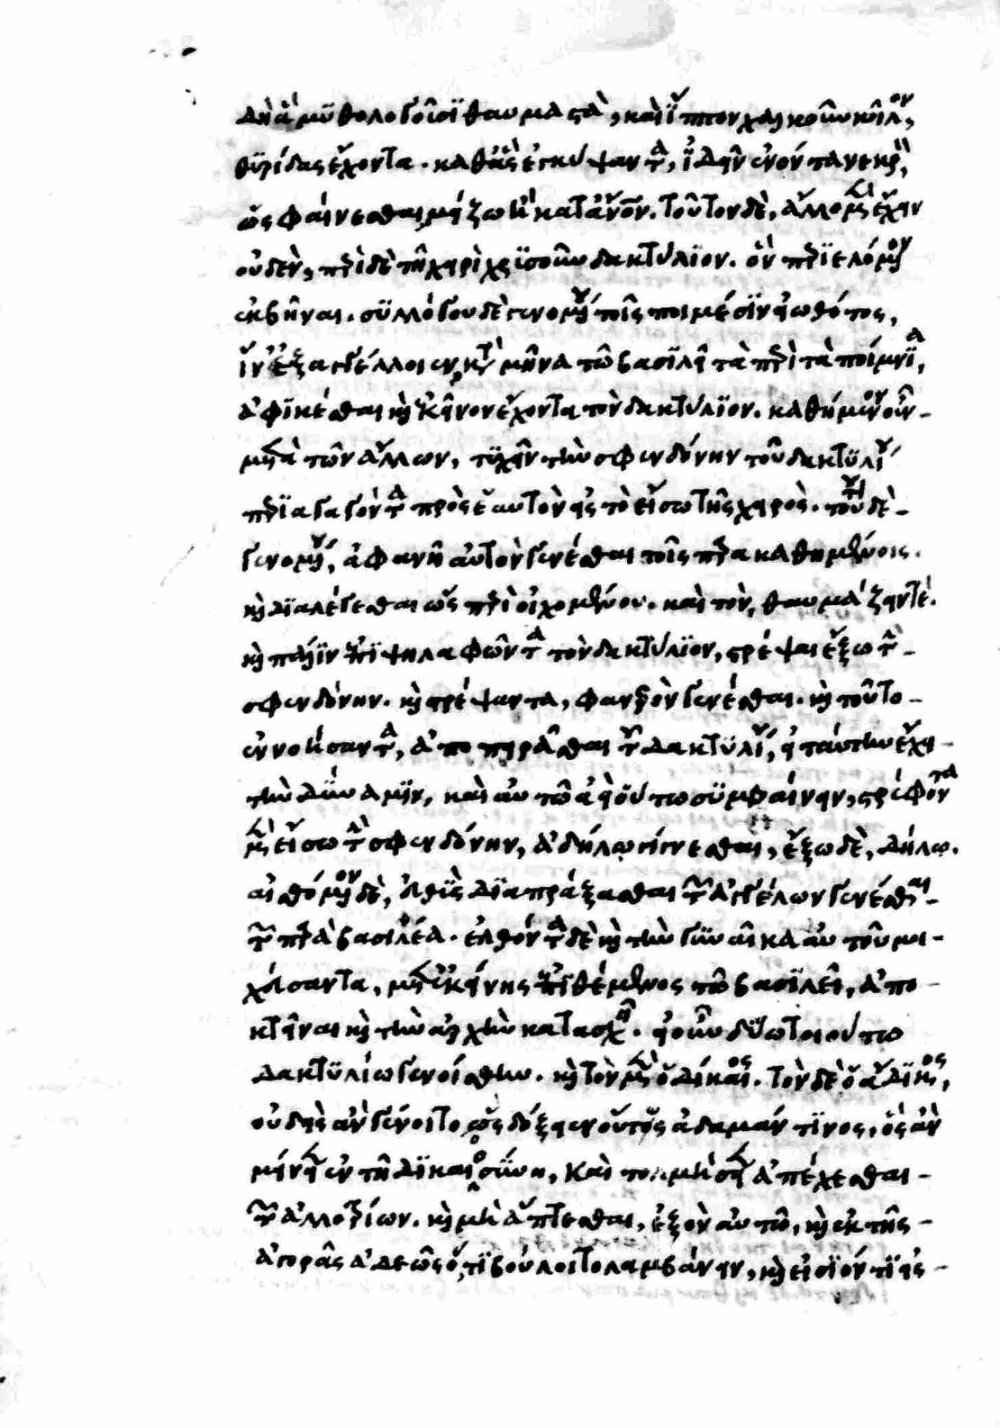 δὴ ἃ μυθολογοῦσι θαυμαστὰ, καὶ ἵππον χαλκοῦν κοῖλον,
θυρίδας ἔχοντα. καθ' ἃς ἐγκύψαντα, ἰδεῖν ἐνόντα νεκρὸν,
ὡς φαίνεσθαι μείζω ἢ κατ' ἄνθρωπον. τοῦτον δὲ, ἄλλο μὲν ἔχειν
οὐδὲν, περὶ δὲ τῇ χειρὶ χρυσοῦν δακτύλιον. ὃν περιελόμενον
ἐκβῆναι. συλλόγου δὲ γενομένου τοῖς ποιμέσιν εἰωθότος,
ἵν' ἐξαγγέλλοιεν κατὰ μῆνα τῷ βασιλεῖ τὰ περὶ τὰ ποίμνια,
ἀφικέσθαι καὶ ἐκεῖνον ἔχοντα τὸν δακτύλιον. καθήμενον οὖν
μετὰ τῶν ἄλλων, τυχεῖν τὴν σφενδόνην τοῦ δακτυλίου
περιαγαγόντα πρὸς ἑαυτὸν εἰς τὸ εἴσω τῆς χειρός. τούτου δὲ
γενομένου, ἀφανῆ αὐτὸν γενέσθαι τοῖς παρακαθημένοις.
καὶ διαλέγεσθαι ὡς περὶ οἰχομένου. καὶ τὸν, θαυμάζειν τε.
καὶ πάλιν ἐπιψηλαφῶντα τὸν δακτύλιον, στρέψαι ἔξω τὴν
σφενδόνην. καὶ στρέψαντα, φανερὸν γενέσθαι. καὶ τοῦτο
ἐννοήσαντα, ἀποπειρᾶσθαι τοῦ δακτυλίου, εἰ ταύτην ἔχει
τὴν δύναμιν, καὶ αὐτῷ ἀεὶ οὕτω συμβαίνειν, στρέφοντα
μὲν εἴσω τὴν σφενδόνην, ἀδήλῳ γίνεσθαι, ἔξω δὲ, δήλῳ.
αἰσθόμενον δὲ, εὐθὺς διαπράξασθαι τῶν ἀγγέλων γενέσθαι
τῶν παρὰ βασιλέα. ἐλθόντα δὲ καὶ τὴν γυναῖκα αὐτοῦ μοι-
χεύσαντα, μετ' ἐκείνης ἐπιθέμενος τῷ βασιλεῖ, ἀπο-
κτεῖναι καὶ τὴν ἀρχὴν κατασχεῖν. εἰ οὖν δύω τοιούτω
δακτυλίω γενοίσθην. καὶ τὸν μὲν ὁ δίκαιος. τὸν δὲ ὁ ἄδικος,
οὐδεὶς ἂν γένοιτο ὡς δόξειεν οὕτως ἀδαμάντινος, ὃς ἂν
μείνῃ ἐν τῇ δικαιοσύνῃ, καὶ τολμήσῃ ἀπέχεσθαι
τῶν ἀλλοτρίων. καὶ μὴ ἅπτεσθαι, ἐξὸν αὐτῷ, καὶ ἐκ τῆς
ἀγορᾶς ἀδεῶς ὅ,τι βούλοιτο λαμβάνειν, καὶ εἰσιόντι εἰς